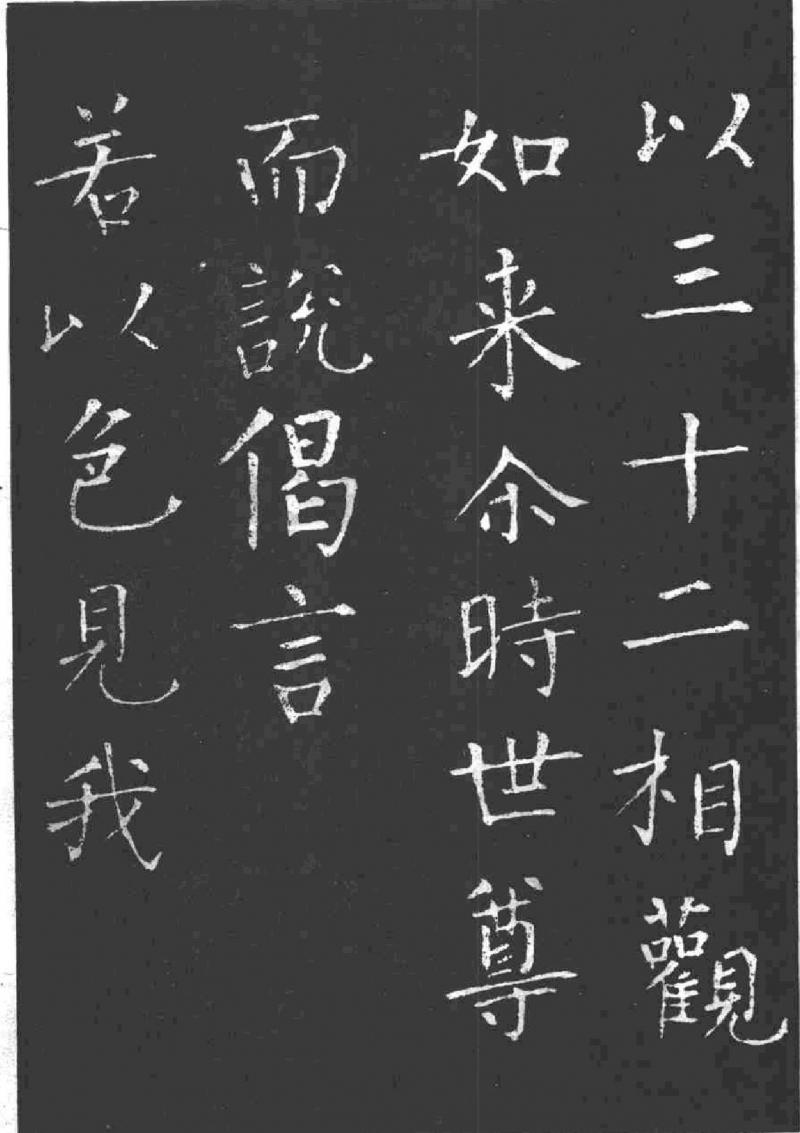 以三十二相觀
如来尒時世尊
而說偈言
若以色見我